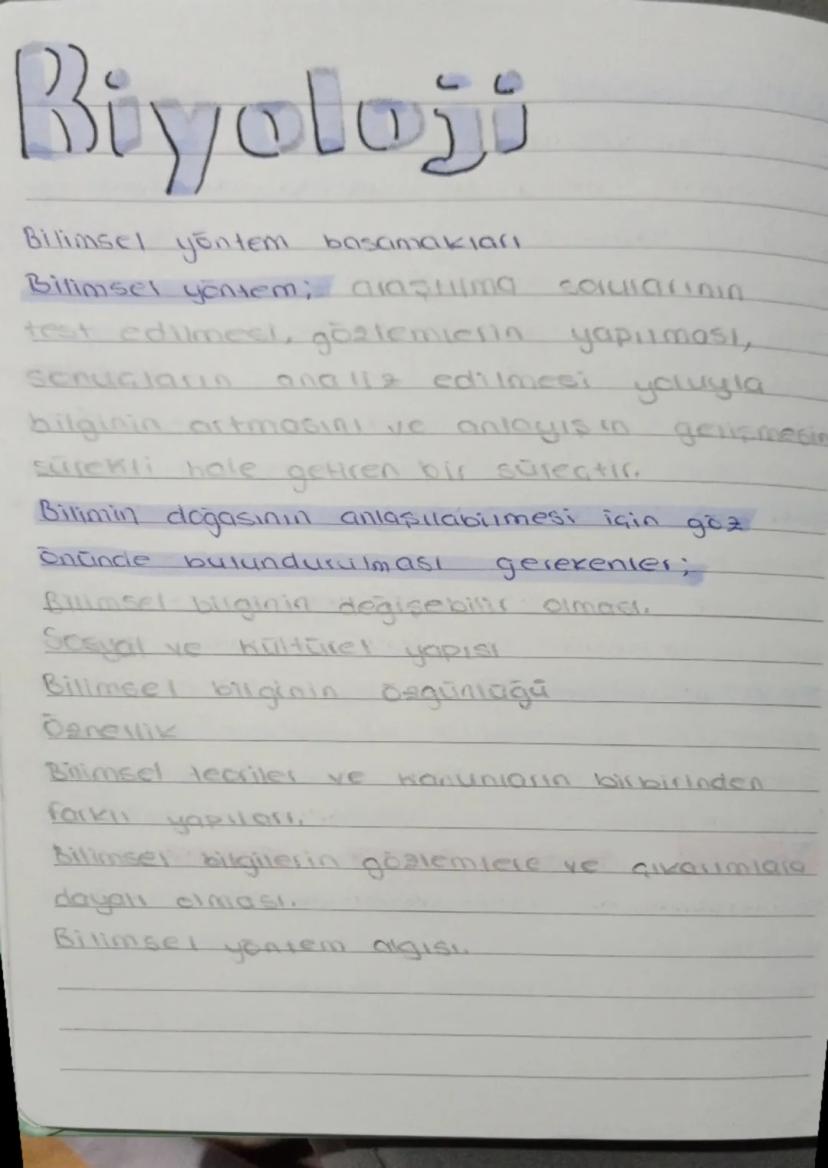 Biyoloji
Bilimsel yöntem basamakları
Bilimsel yöntem; araştırma sorularının
test edilmesi, gözlemlerin yapılması,
sonuçların analiz edilmesi yoluyla
bilginin artmasını ve anlayışın gelişmesin
sürekli hale getiren bir süreçtir.
Bilimin doğasının anlaşılabilmesi için göz
önünde bulundurulması gerekenler;
Bilimsel bilginin değişebilir olması.
Sosyal ve kültürel yapısı
Bilimsel bilginin özgünlüğü
Öznellik
Bilimsel teoriler ve kanunların birbirinden
farklı yapıları.
Bilimsel bilgilerin gözlemlere ve çıkarımlara
dayalı olması.
Bilimsel yöntem algısı.